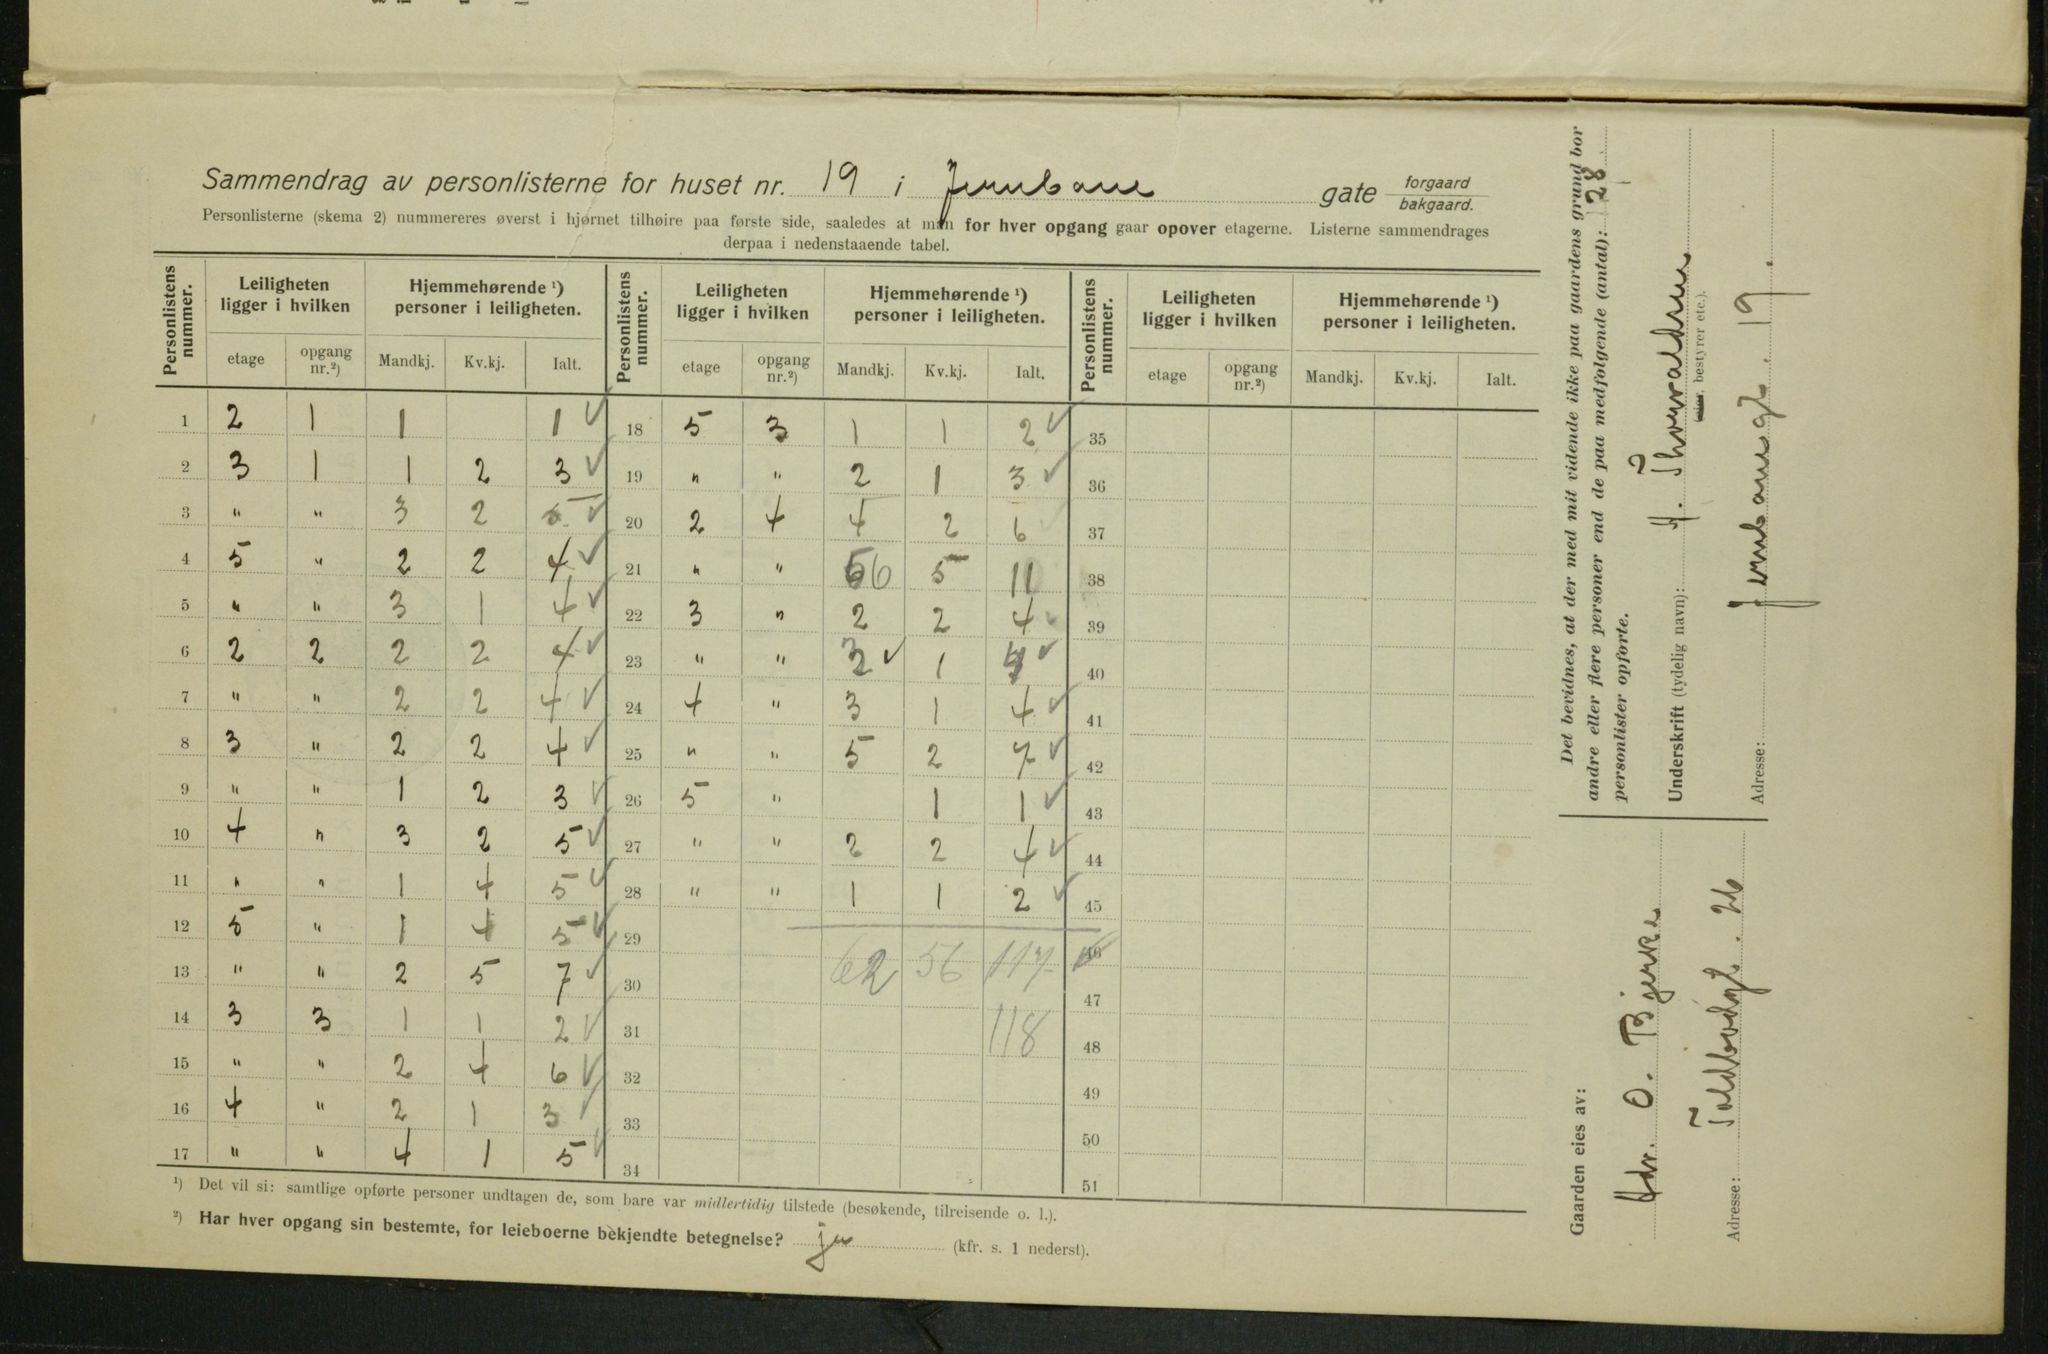 Sammendrag av personlisterne for huset nr. 19 i Jernbane gate forgaard bakgaard.
Personlisterne (skema 2) nummereres øverst i hjørnet tilhøire paa første side, saaledes at man for hver opgang gaar opover etagerne. Listerne sammendrages
derpaa i nedenstaaende tabel.
Personlistens nummer. Leiligheten ligger i hvilken Hjemmehørende ¹) personer i leiligheten. Personlistens nummer. Leiligheten ligger i hvilken Hjemmehørende ¹) personer i leiligheten. Personlistens nummer. Leiligheten ligger i hvilken Hjemmehørende ¹) personer i leiligheten.
etage opgang nr.²) Mandkj. Kv.kj. Ialt. etage opgang nr.²) Mandkj. Kv.kj. Ialt. etage opgang nr.²) Mandkj. Kv.kj. Ialt.
1 2 1 1 1 ✓ 18 5 3 1 1 2 ✓ 35
2 3 1 1 2 3 ✓ 19 " " 2 1 3 ✓ 36
3 " " 3 2 5 ✓ 20 2 4 4 2 6 ✓ 37
4 5 " 2 2 4 ✓ 21 " " 6 6 5 11 38
5 " " 3 1 4 ✓ 22 3 " 2 2 4 ✓ 39
6 2 2 2 2 4 ✓ 23 " " 3 2 ✓ 1 4 ✓ 40
7 " " 2 2 4 ✓ 24 4 " 3 1 4 ✓ 41
8 3 " 2 2 4 ✓ 25 " " 5 2 7 ✓ 42
9 " " 1 2 3 ✓ 26 5 " 1 1 ✓ 43
10 4 " 3 2 5 ✓ 27 " " 2 2 4 ✓ 44
11 " " 1 4 5 ✓ 28 " " 1 1 2 ✓ 45
12 5 " 1 4 5 ✓ 29 46
13 " " 2 5 7 ✓ 30 62 56 117 ✓ 47
14 3 3 1 1 2 ✓ 31 118 48
15 " " 2 4 6 ✓ 32 49
16 4 " 2 1 3 ✓ 33 50
17 " " 4 1 5 ✓ 34 51
¹) Det vil si: samtlige opførte personer undtagen de, som bare var midlertidig tilstede (besøkende, tilreisende o. l.).
²) Har hver opgang sin bestemte, for leieboerne bekjendte betegnelse? ja (kfr. s. 1 nederst).
Det bevidnes, at der med mit vidende ikke paa gaardens grund bor
andre eller flere personer end de paa medfølgende (antal): 28
personlister opførte.
Underskrift (tydelig navn): A. Thorvaldsen
(eier, bestyrer etc.).
Adresse: Jernbanegt. 19.
Gaarden eies av:
Adr. O. Bjerke
Adresse: Toldbodgt. 26